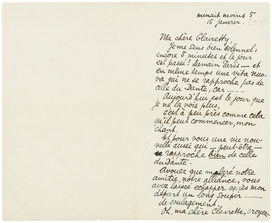 minuit moins 5
15 janvier.
Ma chère Clairette
Je me sens bien solennel:
encore 5 minutes et le jour
est passé! Demain Paris — et
en même temps une vita nuova
qui ne se rapproche pas de
celle du Dante, car
Aujourd'hui est le jour que
je ne la vois plus,
c'est à peu près comme cela
qu'il peut commencer, mon
chant.
Et pour vous une vie nou-
velle aussi qui — peut-être —
se rapproche bien de celle
du Dante.
Avouez que malgré notre
amitié, notre alliance, vous
avez laissé échapper, après mon
départ un long soupir
de soulagement.
Oh, ma chère Clairette, croyez